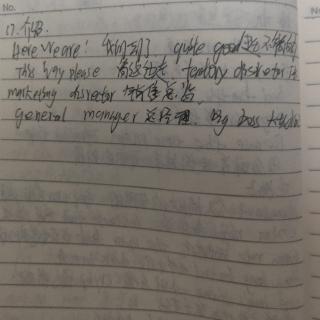 No.
17. 介绍.
Here we are! 我们到了. quite good 还不错
This way please 请这边走 factory director
marketing director 销售总监
general manager 总经理. big boss 大老板